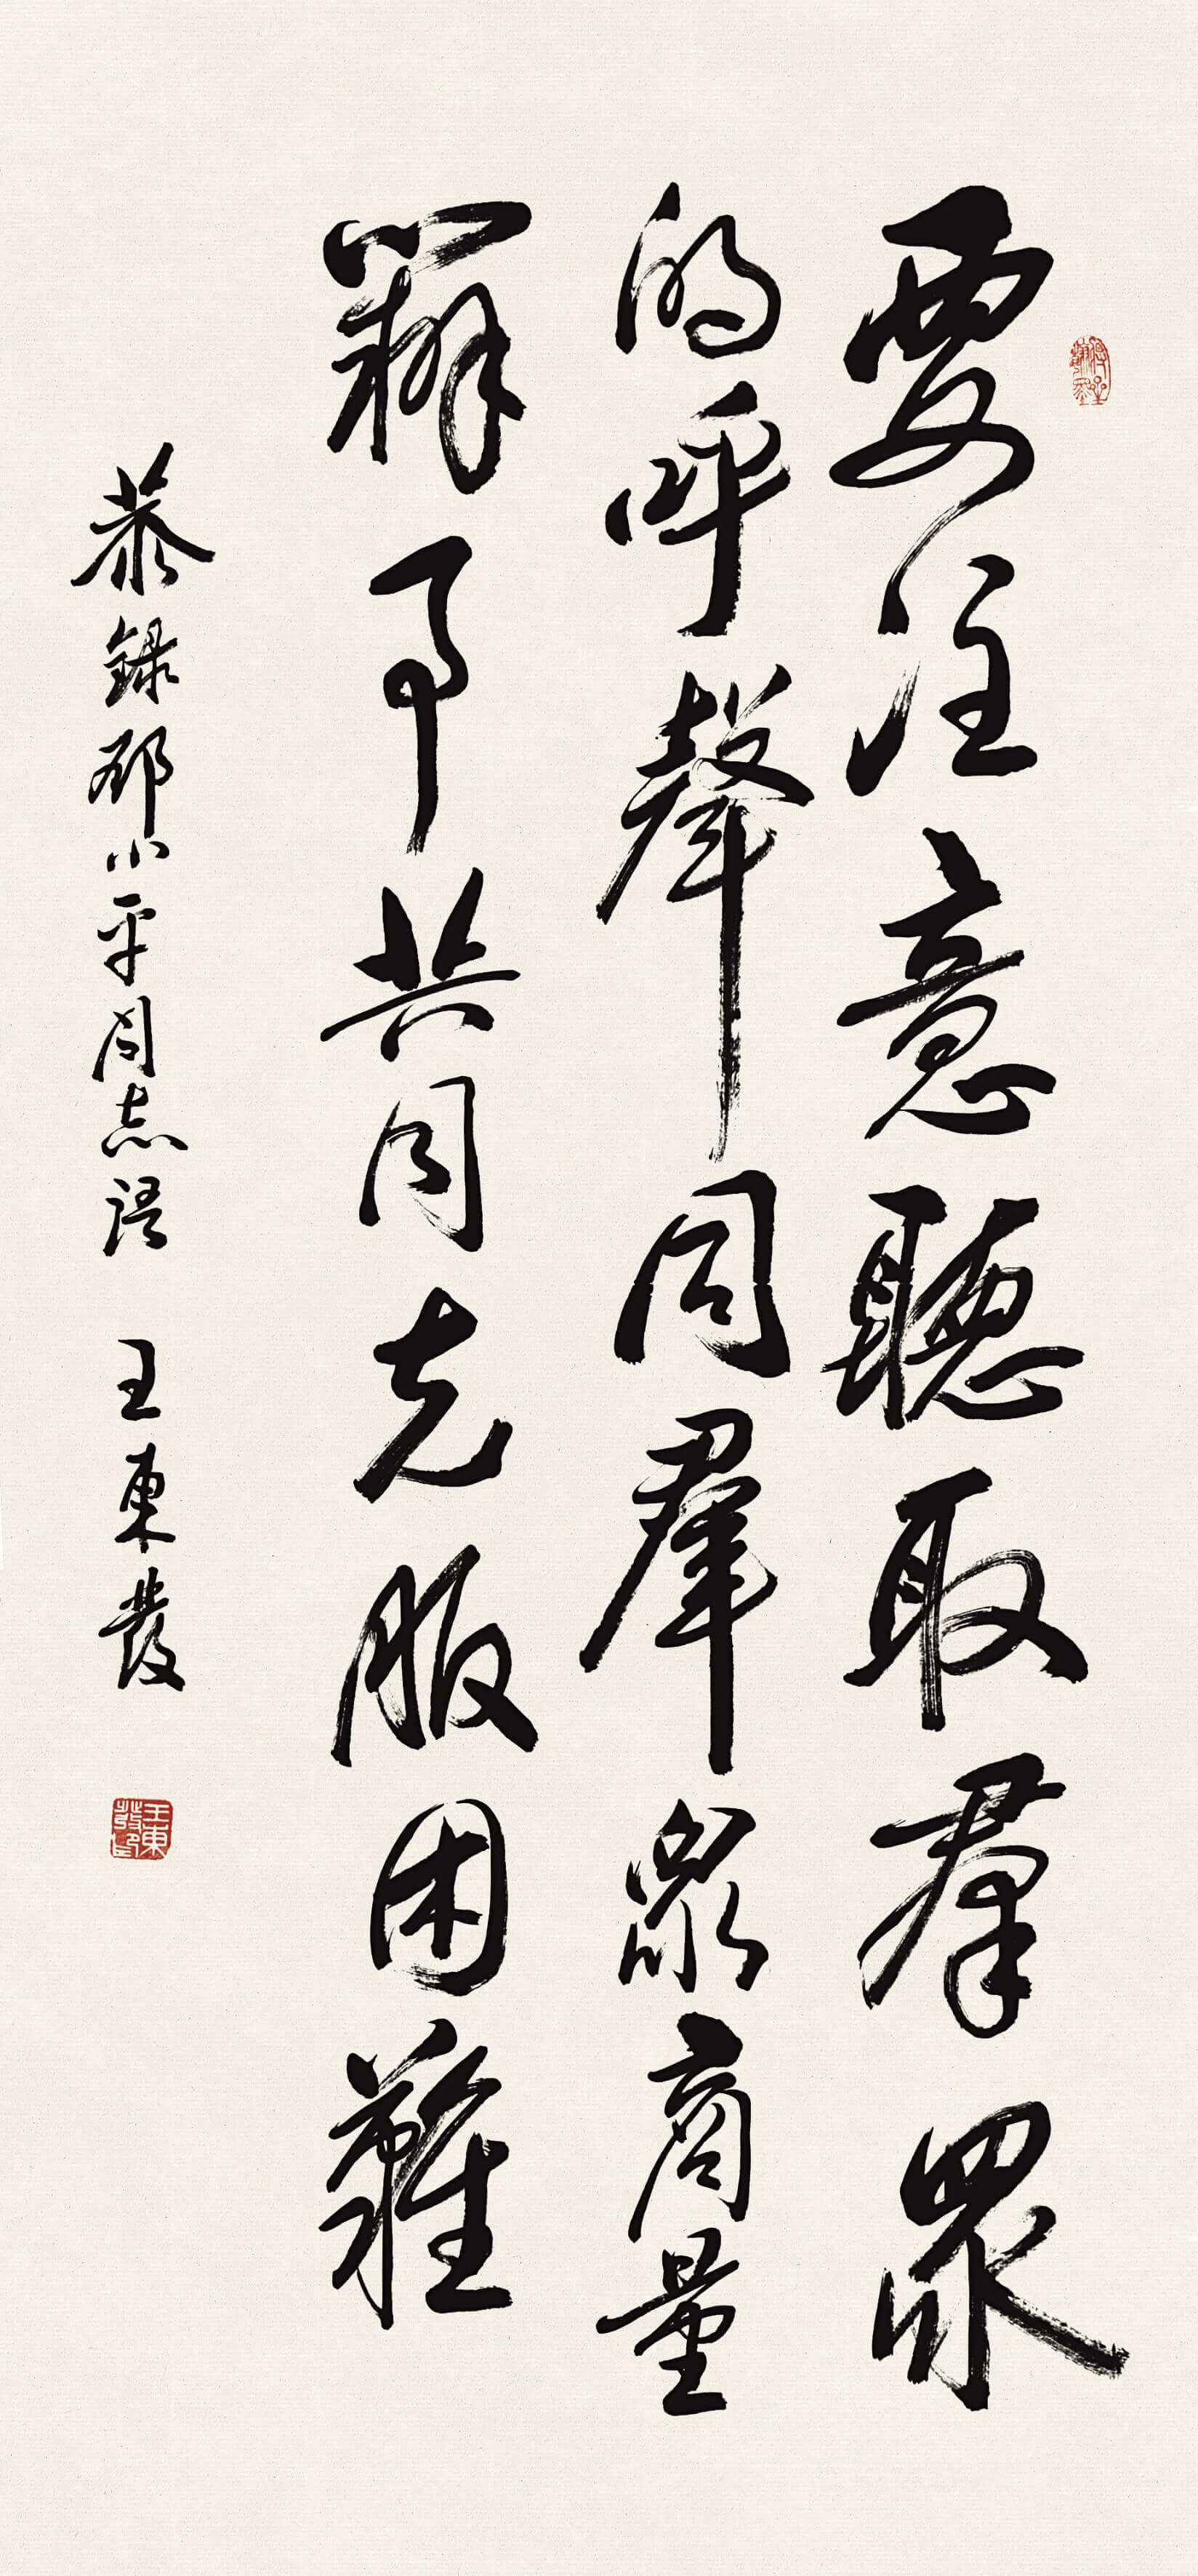 要注意聽取羣眾
的呼聲同羣眾商量
辦事共同克服困難
恭録鄧小平同志語 王東發
王東發印